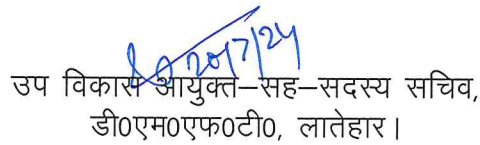 20/7/24
उप विकास आयुक्त–सह–सदस्य सचिव,
डी0एम0एफ0टी0, लातेहार।